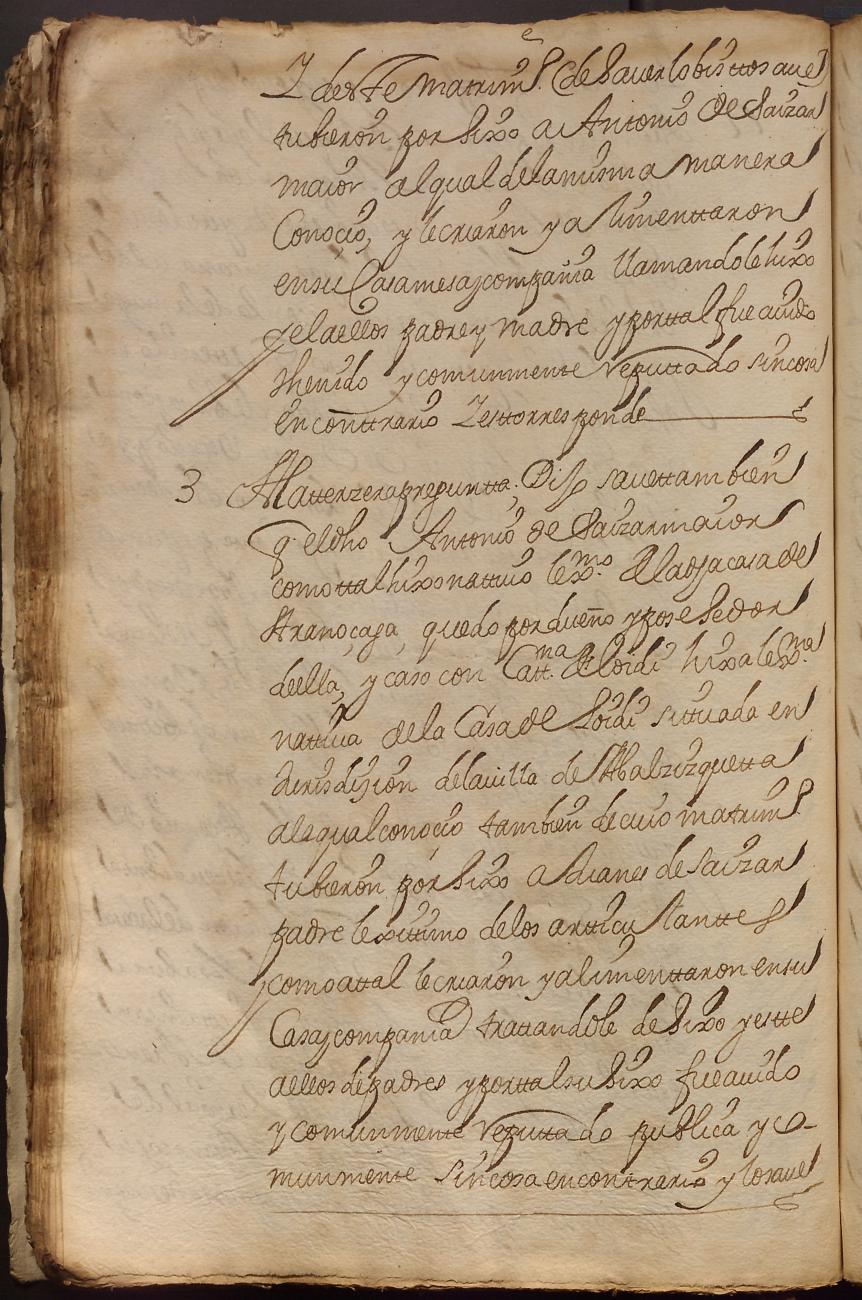 Y deste matrimo. e de saver lo bisttos que
tubieron por hixo a Antonio de Saizar
maior al qual de la misma manera
Conoçio, y le criaron y alimenttaron
en su Casa mesa y compania llamandole hixo
y el a ellos padre y madre y por ttal fue auido
thenido y comunmente reputtado sin cosa
en conttrario Y estto rresponde
3 A la tterzera preguntta, Dijo save ttambien
q. el dho Antonio de Saizar maior
como ttal hixo nattiuo lexmo. de la dha casa de
Arano, caya, quedo por dueño y posehedor
della, y caso con Catt.na de Loidi hixa lexma.
nattiua de la Casa de Loidi sittuada en
Jurisdiçion de la uilla de Abalzizquetta
a la qual conocio tambien de cuio matrimo.
tubieron por hixo a Juanes de Saizar
padre lexitimo de los artticulanttes
como a ttal le criaron y alimenttaron en su
Casa y compania trattandole de hixo y estte
a ellos de padres y por ttal su hixo fue auido
y comunmente reputtado publica y co-
munmente sin cosa en contrario y lo saue